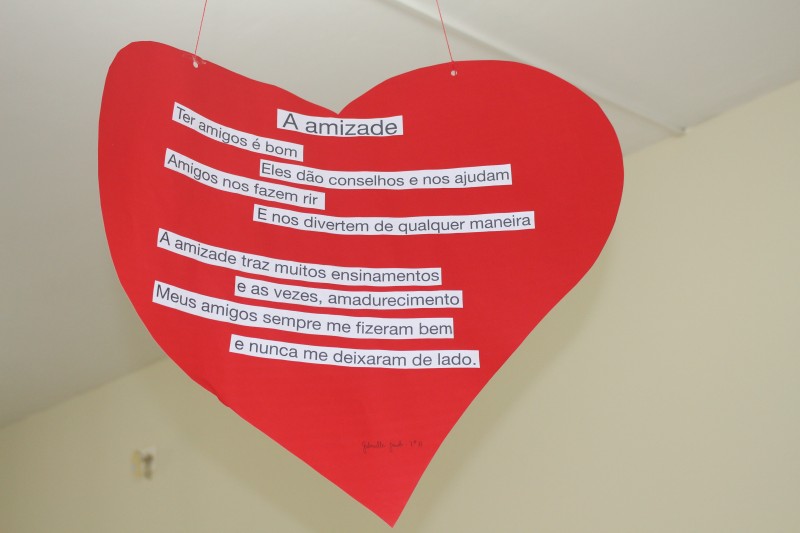 A amizade
Ter amigos é bom
Eles dão conselhos e nos ajudam
Amigos nos fazem rir
E nos divertem de qualquer maneira
A amizade traz muitos ensinamentos
e as vezes, amadurecimento
Meus amigos sempre me fizeram bem
e nunca me deixaram de lado.